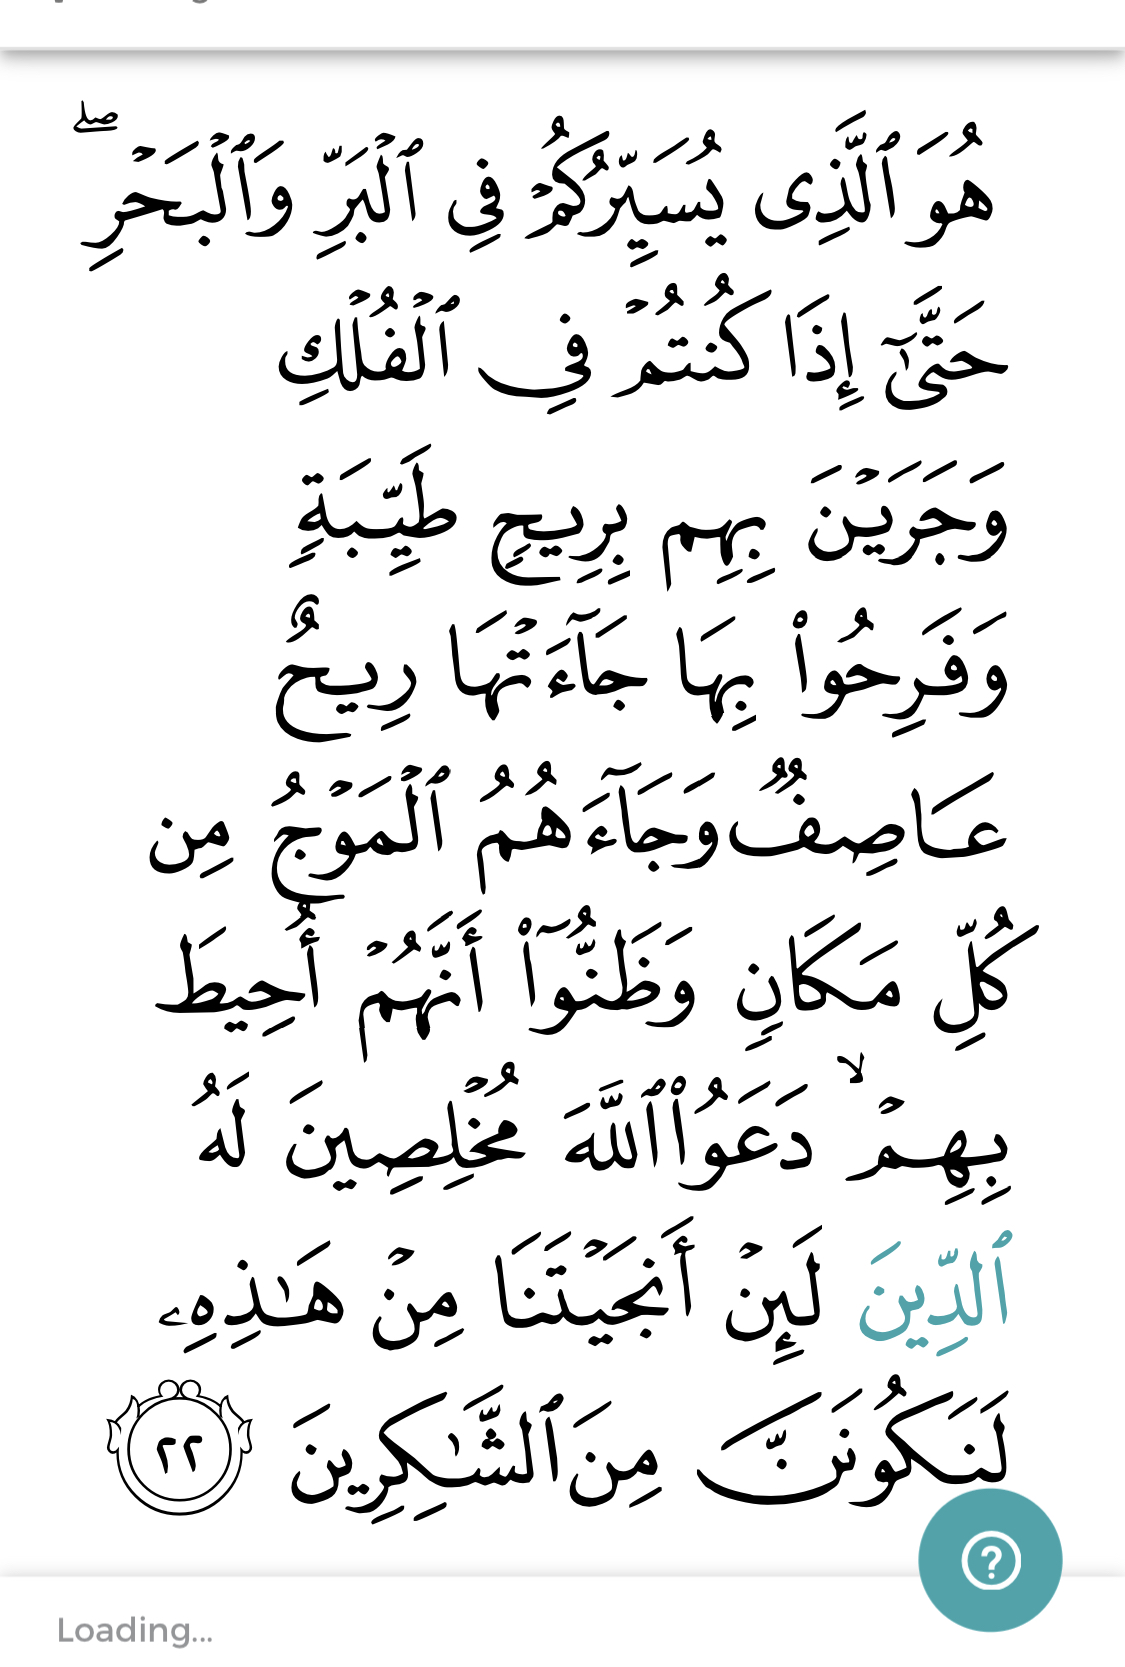 هُوَ ٱلَّذِى يُسَيِّرُكُمْ فِى ٱلْبَرِّ وَٱلْبَحْرِ ۖ
حَتَّىٰٓ إِذَا كُنتُمْ فِى ٱلْفُلْكِ
وَجَرَيْنَ بِهِم بِرِيحٍ طَيِّبَةٍ
وَفَرِحُوا۟ بِهَا جَآءَتْهَا رِيحٌ
عَاصِفٌ وَجَآءَهُمُ ٱلْمَوْجُ مِن
كُلِّ مَكَانٍ وَظَنُّوٓا۟ أَنَّهُمْ أُحِيطَ
بِهِمْ ۙ دَعَوُا۟ ٱللَّهَ مُخْلِصِينَ لَهُ
ٱلدِّينَ لَئِنْ أَنجَيْتَنَا مِنْ هَـٰذِهِۦ
لَنَكُونَنَّ مِنَ ٱلشَّـٰكِرِينَ ٢٢
?
Loading...